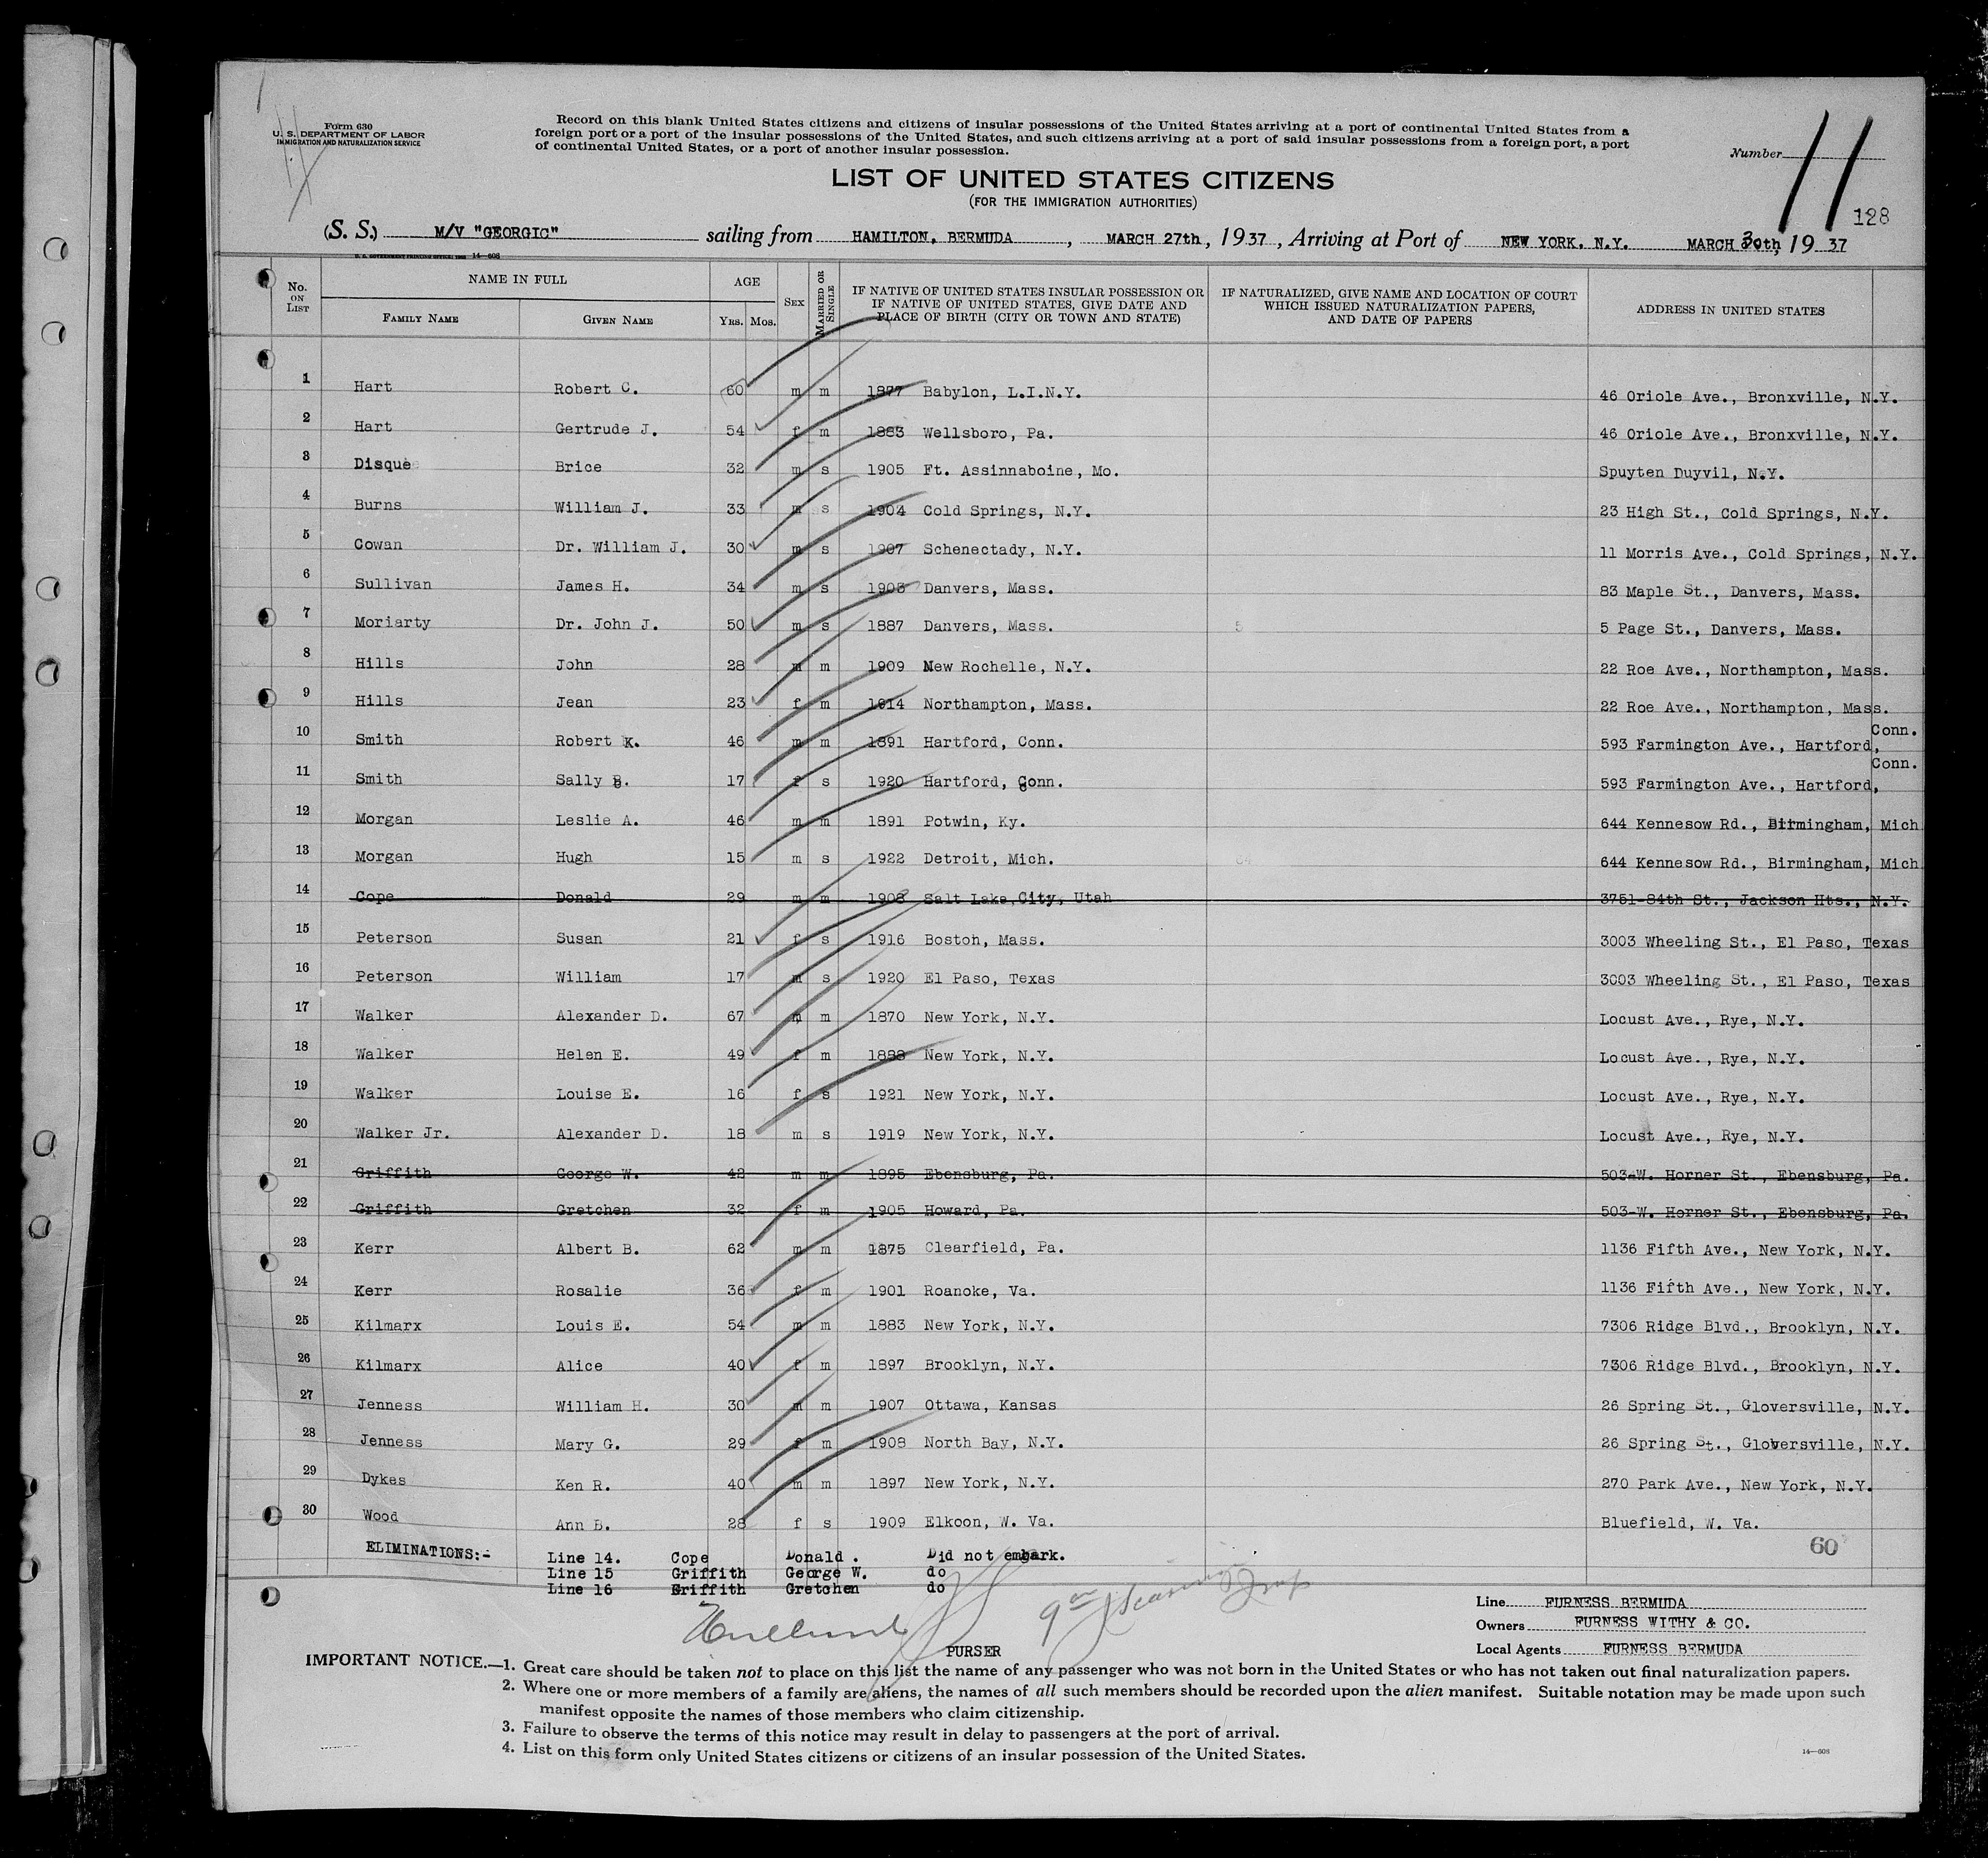 Form 630
U. S. DEPARTMENT OF LABOR
IMMIGRATION AND NATURALIZATION SERVICE
Record on this blank United States citizens and citizens of insular possessions of the United States arriving at a port of continental United States from a
foreign port or a port of the insular possessions of the United States, and such citizens arriving at a port of said insular possessions from a foreign port, a port
of continental United States, or a port of another insular possession.
Number 11
128
LIST OF UNITED STATES CITIZENS
(FOR THE IMMIGRATION AUTHORITIES)
(S. S.) M/V "GEORGIC" sailing from HAMILTON, BERMUDA, MARCH 27th, 1937, Arriving at Port of NEW YORK, N.Y. MARCH 30th, 1937
U. S. GOVERNMENT PRINTING OFFICE 14—608
No. ON LIST NAME IN FULL FAMILY NAME GIVEN NAME AGE YRS. MOS. SEX MARRIED OR SINGLE IF NATIVE OF UNITED STATES INSULAR POSSESSION OR IF NATIVE OF UNITED STATES, GIVE DATE AND PLACE OF BIRTH (CITY OR TOWN AND STATE) IF NATURALIZED, GIVE NAME AND LOCATION OF COURT WHICH ISSUED NATURALIZATION PAPERS, AND DATE OF PAPERS ADDRESS IN UNITED STATES
1 Hart Robert C. 60 m m 1877 Babylon, L.I.N.Y. 46 Oriole Ave., Bronxville, N.Y.
2 Hart Gertrude J. 54 f m 1883 Wellsboro, Pa. 46 Oriole Ave., Bronxville, N.Y.
3 Disque Brice 32 m s 1905 Ft. Assinnaboine, Mo. Spuyten Duyvil, N.Y.
4 Burns William J. 33 m s 1904 Cold Springs, N.Y. 23 High St., Cold Springs, N.Y.
5 Cowan Dr. William J. 30 m s 1907 Schenectady, N.Y. 11 Morris Ave., Cold Springs, N.Y.
6 Sullivan James H. 34 m s 1903 Danvers, Mass. 83 Maple St., Danvers, Mass.
7 Moriarty Dr. John J. 50 m s 1887 Danvers, Mass. 5 Page St., Danvers, Mass.
8 Hills John 28 m m 1909 New Rochelle, N.Y. 22 Roe Ave., Northampton, Mass.
9 Hills Jean 23 f m 1914 Northampton, Mass. 22 Roe Ave., Northampton, Mass.
10 Smith Robert K. 46 m m 1891 Hartford, Conn. 593 Farmington Ave., Hartford, Conn.
11 Smith Sally B. 17 f s 1920 Hartford, Conn. 593 Farmington Ave., Hartford, Conn.
12 Morgan Leslie A. 46 m m 1891 Potwin, Ky. 644 Kennesow Rd., Birmingham, Mich
13 Morgan Hugh 15 m s 1922 Detroit, Mich. 644 Kennesow Rd., Birmingham, Mich
14 Cope Donald 29 m m 1908 Salt Lake City, Utah 3751-84th St., Jackson Hts., N.Y.
15 Peterson Susan 21 f s 1916 Boston, Mass. 3003 Wheeling St., El Paso, Texas
16 Peterson William 17 m s 1920 El Paso, Texas 3003 Wheeling St., El Paso, Texas
17 Walker Alexander D. 67 m m 1870 New York, N.Y. Locust Ave., Rye, N.Y.
18 Walker Helen E. 49 f m 1888 New York, N.Y. Locust Ave., Rye, N.Y.
19 Walker Louise E. 16 f s 1921 New York, N.Y. Locust Ave., Rye, N.Y.
20 Walker Jr. Alexander D. 18 m s 1919 New York, N.Y. Locust Ave., Rye, N.Y.
21 Griffith George W. 42 m m 1895 Ebensburg, Pa. 503-W. Horner St., Ebensburg, Pa.
22 Griffith Gretchen 32 f m 1905 Howard, Pa. 503-W. Horner St., Ebensburg, Pa.
23 Kerr Albert B. 62 m m 1875 Clearfield, Pa. 1136 Fifth Ave., New York, N.Y.
24 Kerr Rosalie 36 f m 1901 Roanoke, Va. 1136 Fifth Ave., New York, N.Y.
25 Kilmarx Louis E. 54 m m 1883 New York, N.Y. 7306 Ridge Blvd., Brooklyn, N.Y.
26 Kilmarx Alice 40 f m 1897 Brooklyn, N.Y. 7306 Ridge Blvd., Brooklyn, N.Y.
27 Jenness William H. 30 m m 1907 Ottawa, Kansas 26 Spring St., Gloversville, N.Y.
28 Jenness Mary G. 29 f m 1908 North Bay, N.Y. 26 Spring St., Gloversville, N.Y.
29 Dykes Ken R. 40 m m 1897 New York, N.Y. 270 Park Ave., New York, N.Y.
30 Wood Ann B. 28 f s 1909 Elkoon, W. Va. Bluefield, W. Va.
60
ELIMINATIONS:- Line 14. Cope Donald. Did not embark.
Line 15 Griffith George W. do
Line 16 Griffith Gretchen do
PURSER
Line FURNESS BERMUDA
Owners FURNESS WITHY & CO.
Local Agents FURNESS BERMUDA
IMPORTANT NOTICE.—1. Great care should be taken not to place on this list the name of any passenger who was not born in the United States or who has not taken out final naturalization papers.
2. Where one or more members of a family are aliens, the names of all such members should be recorded upon the alien manifest. Suitable notation may be made upon such
manifest opposite the names of those members who claim citizenship.
3. Failure to observe the terms of this notice may result in delay to passengers at the port of arrival.
4. List on this form only United States citizens or citizens of an insular possession of the United States.
14—608